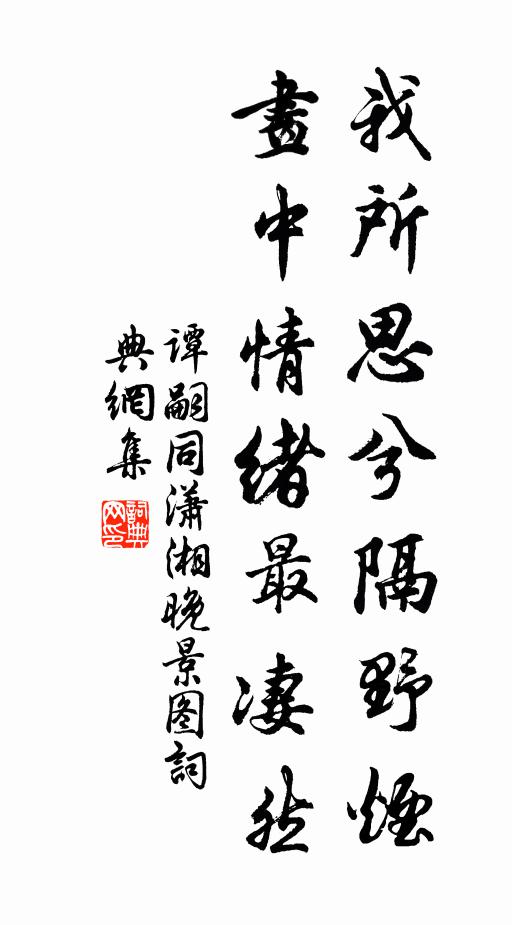 我所思兮隔野煙
畫中情緒最凄然
谭嗣同瀟湘晚景图詞
典網集
詞典
网印